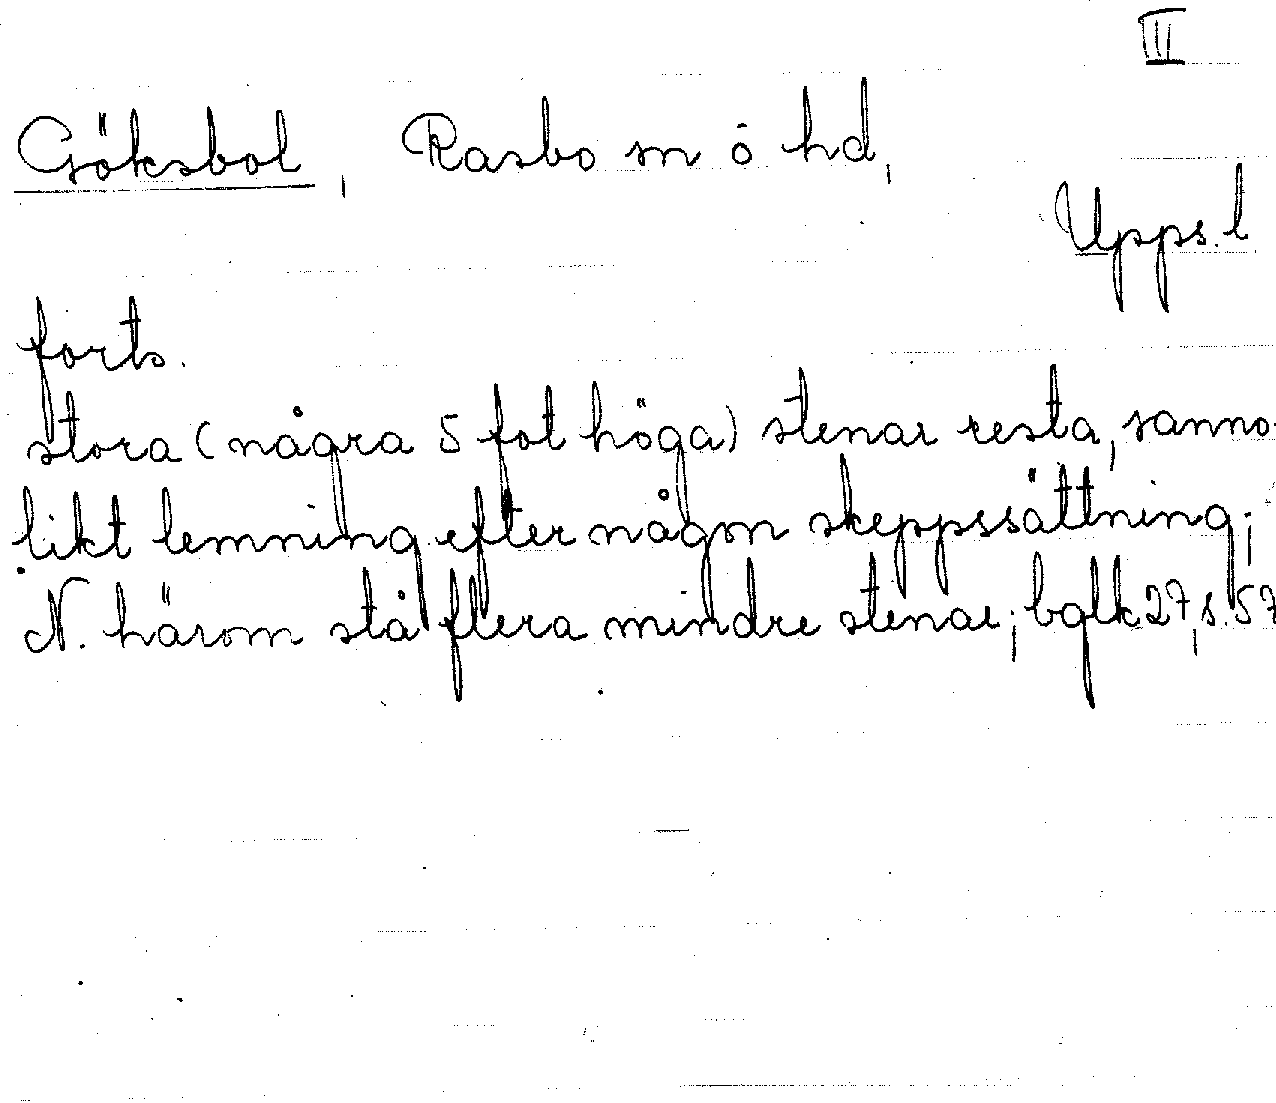 III
Göksbol, Rasbo sn o hd,
Upps. l
forts.
stora (några 5 fot höga) stenar resta, sanno-
likt lemning efter någon skeppssättning;
N. härom stå flera mindre stenar; bqlk 27, s. 57